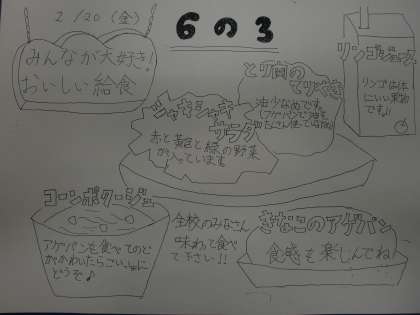 2/20(金)
6の3
みんなが大好き!
おいしい給食
リンゴジュース
リンゴは体
にいい果物
です!!
とり肉の
てりやき
油少なめです。
シャキシャキ
サラダ
赤と黄色と緑の野菜
が入っています
コーンポタージュ
アゲパンを食べてのど
がかわいたらごいっしょに
どうぞ♪
全校のみなさん
味わって食べ
て下さい!!
きなこのアゲパン
食感も楽しんでね!